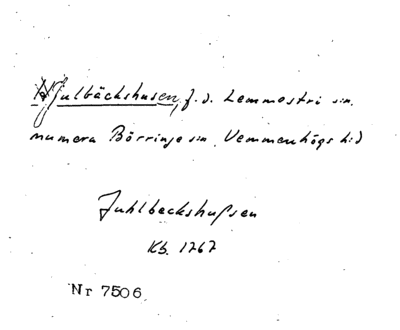 Julbäckshusen, f.d. Lemmeströ sn.
numera Börringe sn Vemmenhögs hd
Juhlbeckshußen
Kb. 1767
Nr 7506